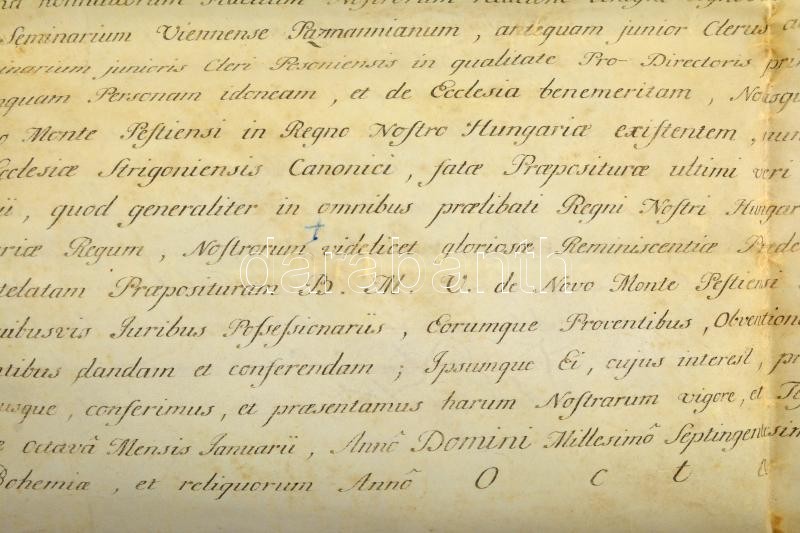 nonnullorum Fidelium Nostrorum
Seminarium Viennense Pazmannianum, antequam junior Clerus
inarium junioris Cleri Posoniensis in qualitate Pro-Directoris
quam Personam idoneam, et de Ecclesia benemeritam, Nousqu
o Monte Pestiensi in Regno Nostro Hungariæ existentem, nun
Ecclesiæ Strigoniensis Canonici, fatæ Præposituræ ultimi veri
ii, quod generaliter in omnibus prælibati Regni Nostri Hungar
riæ Regum, Nostrorum videlicet gloriosæ Reminiscentiæ Præde
telatam Præposituram B. M. V. de Novo Monte Pestiensi
uibusvis Juribus Possessionariis, Eorumque Proventibus, Obvention
ntibus dandam et conferendam; Ipsumque Ei, cujus interest, pr
usque, conferimus, et præsentamus harum Nostrarum vigore, et Te
e octavâ Mensis Januarii, Annô Domini Millesimô Septingentesim
Bohemiæ, et reliquorum Annô O c t a
darabanth